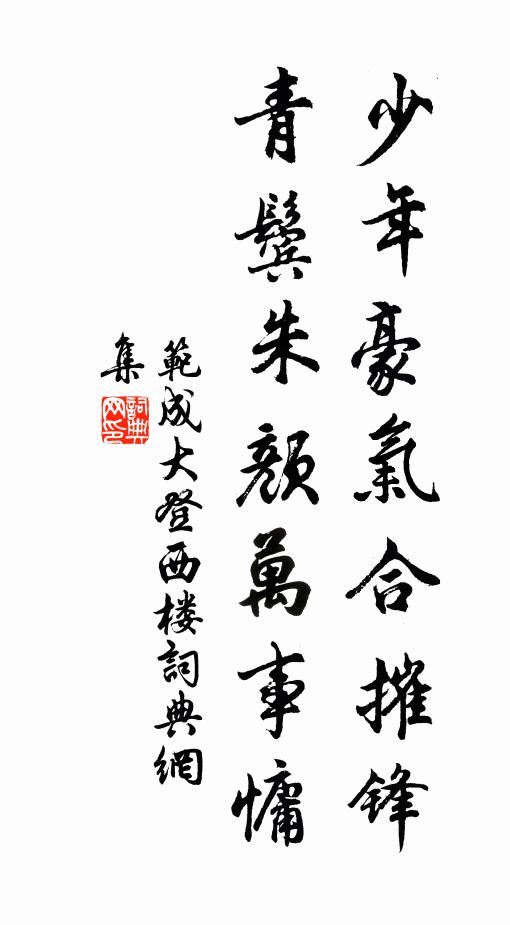 少年豪氣合摧鋒
青鬢朱顏萬事慵
範成大登西楼詞典網
集
詞典网印